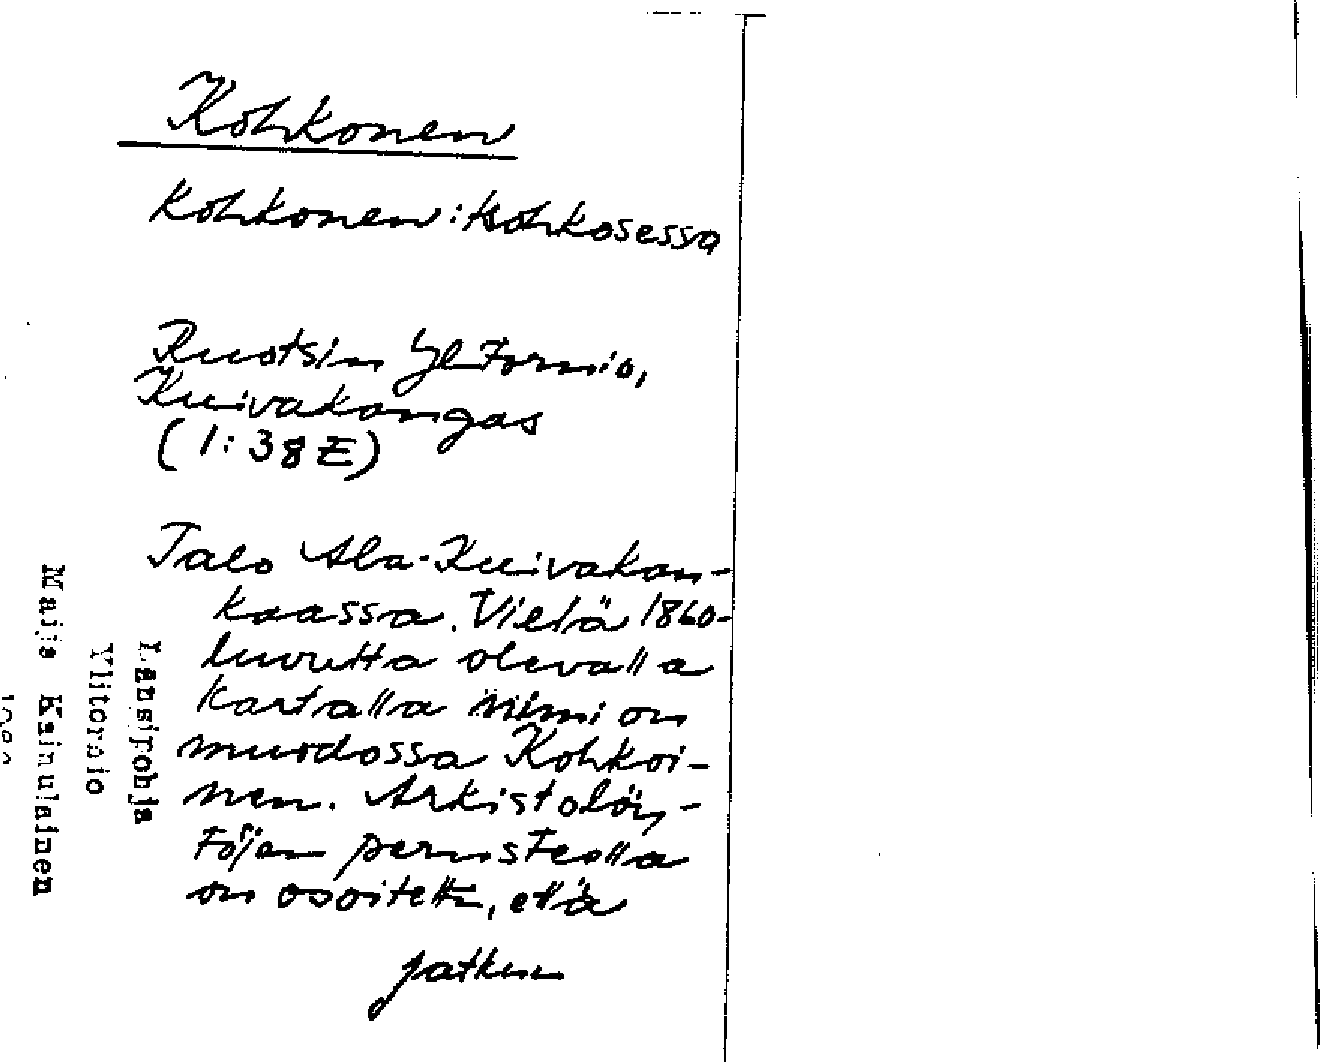 Kohkonen
Kohkonen : Kohkosessa
Ruotsin Ylitornio,
Kuivakangas
(1:38 E)
Talo Ala-Kuivakan-
kaassa. Vielä 1860-
luvulta olevalla
kartalla nimi on
muodossa Kohkoi-
nen. Arkistolöy-
töjen perusteella
on osoitettu, että
jatkuu
Länsipohja
Ylitornio
Maija Kainulainen